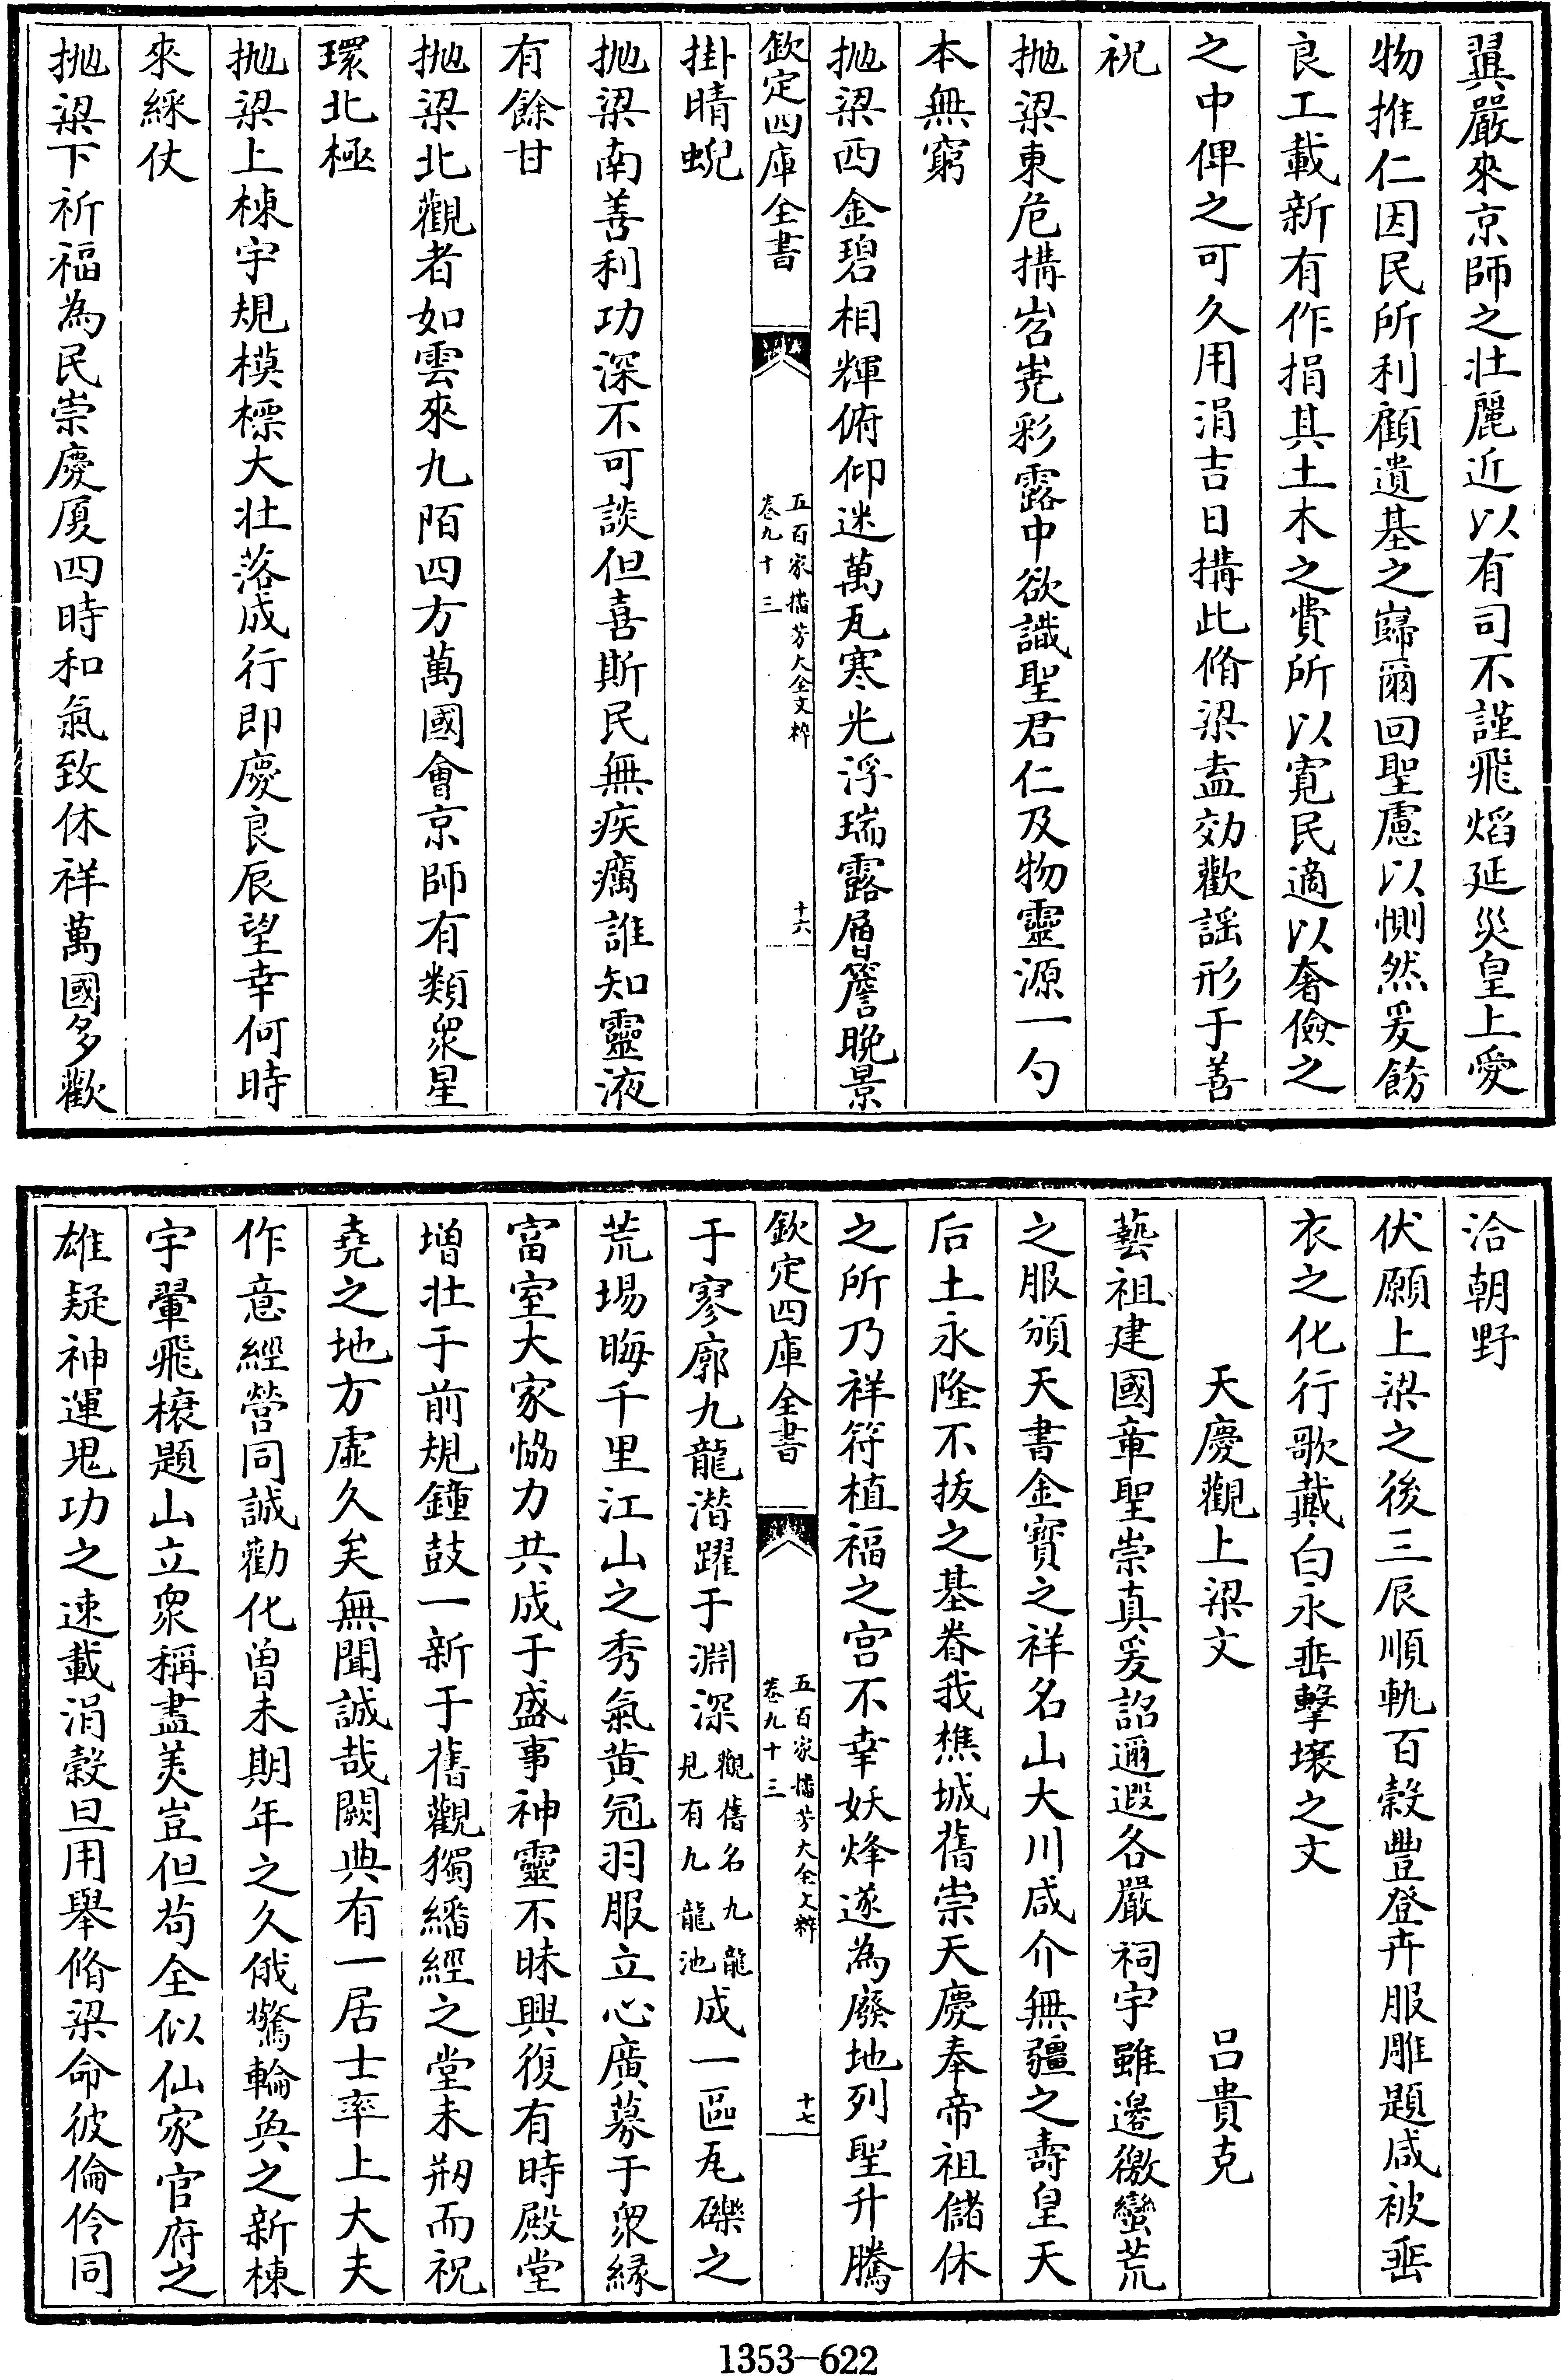 翼嚴來京師之壯麗近以有司不謹飛焰延災皇上愛
物推仁因民所利顧遺基之巋爾回聖慮以惻然爰飭
良工載新有作捐其土木之費所以寛民適以奢儉之
之中俾之可久用涓吉日搆此脩梁盍効歡謡形于善
祝
拋梁東危搆岧嶤彩露中欲識聖君仁及物靈源一勺
本無窮
拋梁西金碧相輝俯仰迷萬瓦寒光浮瑞露層簷晩景
欽定四庫全書
五百家播芳大全文粹
卷九十三
十六
掛晴蜺
拋梁南善利功深不可談但喜斯民無疾癘誰知靈液
有餘甘
拋梁北觀者如雲來九陌四方萬國會京師有類衆星
環北極
拋梁上棟宇規模標大壯落成行即慶良辰望幸何時
來綵仗
拋梁下祈福為民崇慶厦四時和氣致休祥萬國多歡
洽朝野
伏願上梁之後三辰順軌百榖豐登卉服雕題咸被垂
衣之化行歌戴白永垂擊壤之文
天慶觀上梁文
吕貴克
藝祖建國章聖崇真爰詔邇遐各嚴祠宇雖邊徼蠻荒
之服頒天書金寶之祥名山大川咸介無疆之壽皇天
后土永隆不拔之基眷我樵城舊崇天慶奉帝祖儲休
之所乃祥符植福之宫不幸妖烽遂為廢地列聖升騰
欽定四庫全書
五百家播芳大全文粹
卷九十三
十七
于寥廓九龍潛躍于淵深觀舊名九龍見有九龍池成一區瓦礫之
荒埸晦千里江山之秀氣黄冠羽服立心廣募于衆緣
富室大家恊力共成于盛事神靈不昧興復有時殿堂
增壯于前規鐘鼓一新于舊觀獨繙經之堂未剏而祝
堯之地方虚久矣無聞誠哉闕典有一居士率上大夫
作意經營同誠勸化曽未期年之久俄驚輪奐之新棟
宇翬飛榱題山立衆稱盡美豈但茍全似仙家官府之
雄疑神運鬼功之速載涓榖旦用舉脩梁命彼倫伶同
1353—622